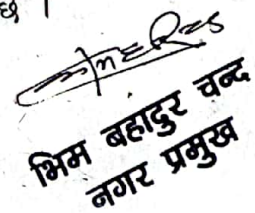 छ ।
भिम बहादुर चन्द
नगर प्रमुख